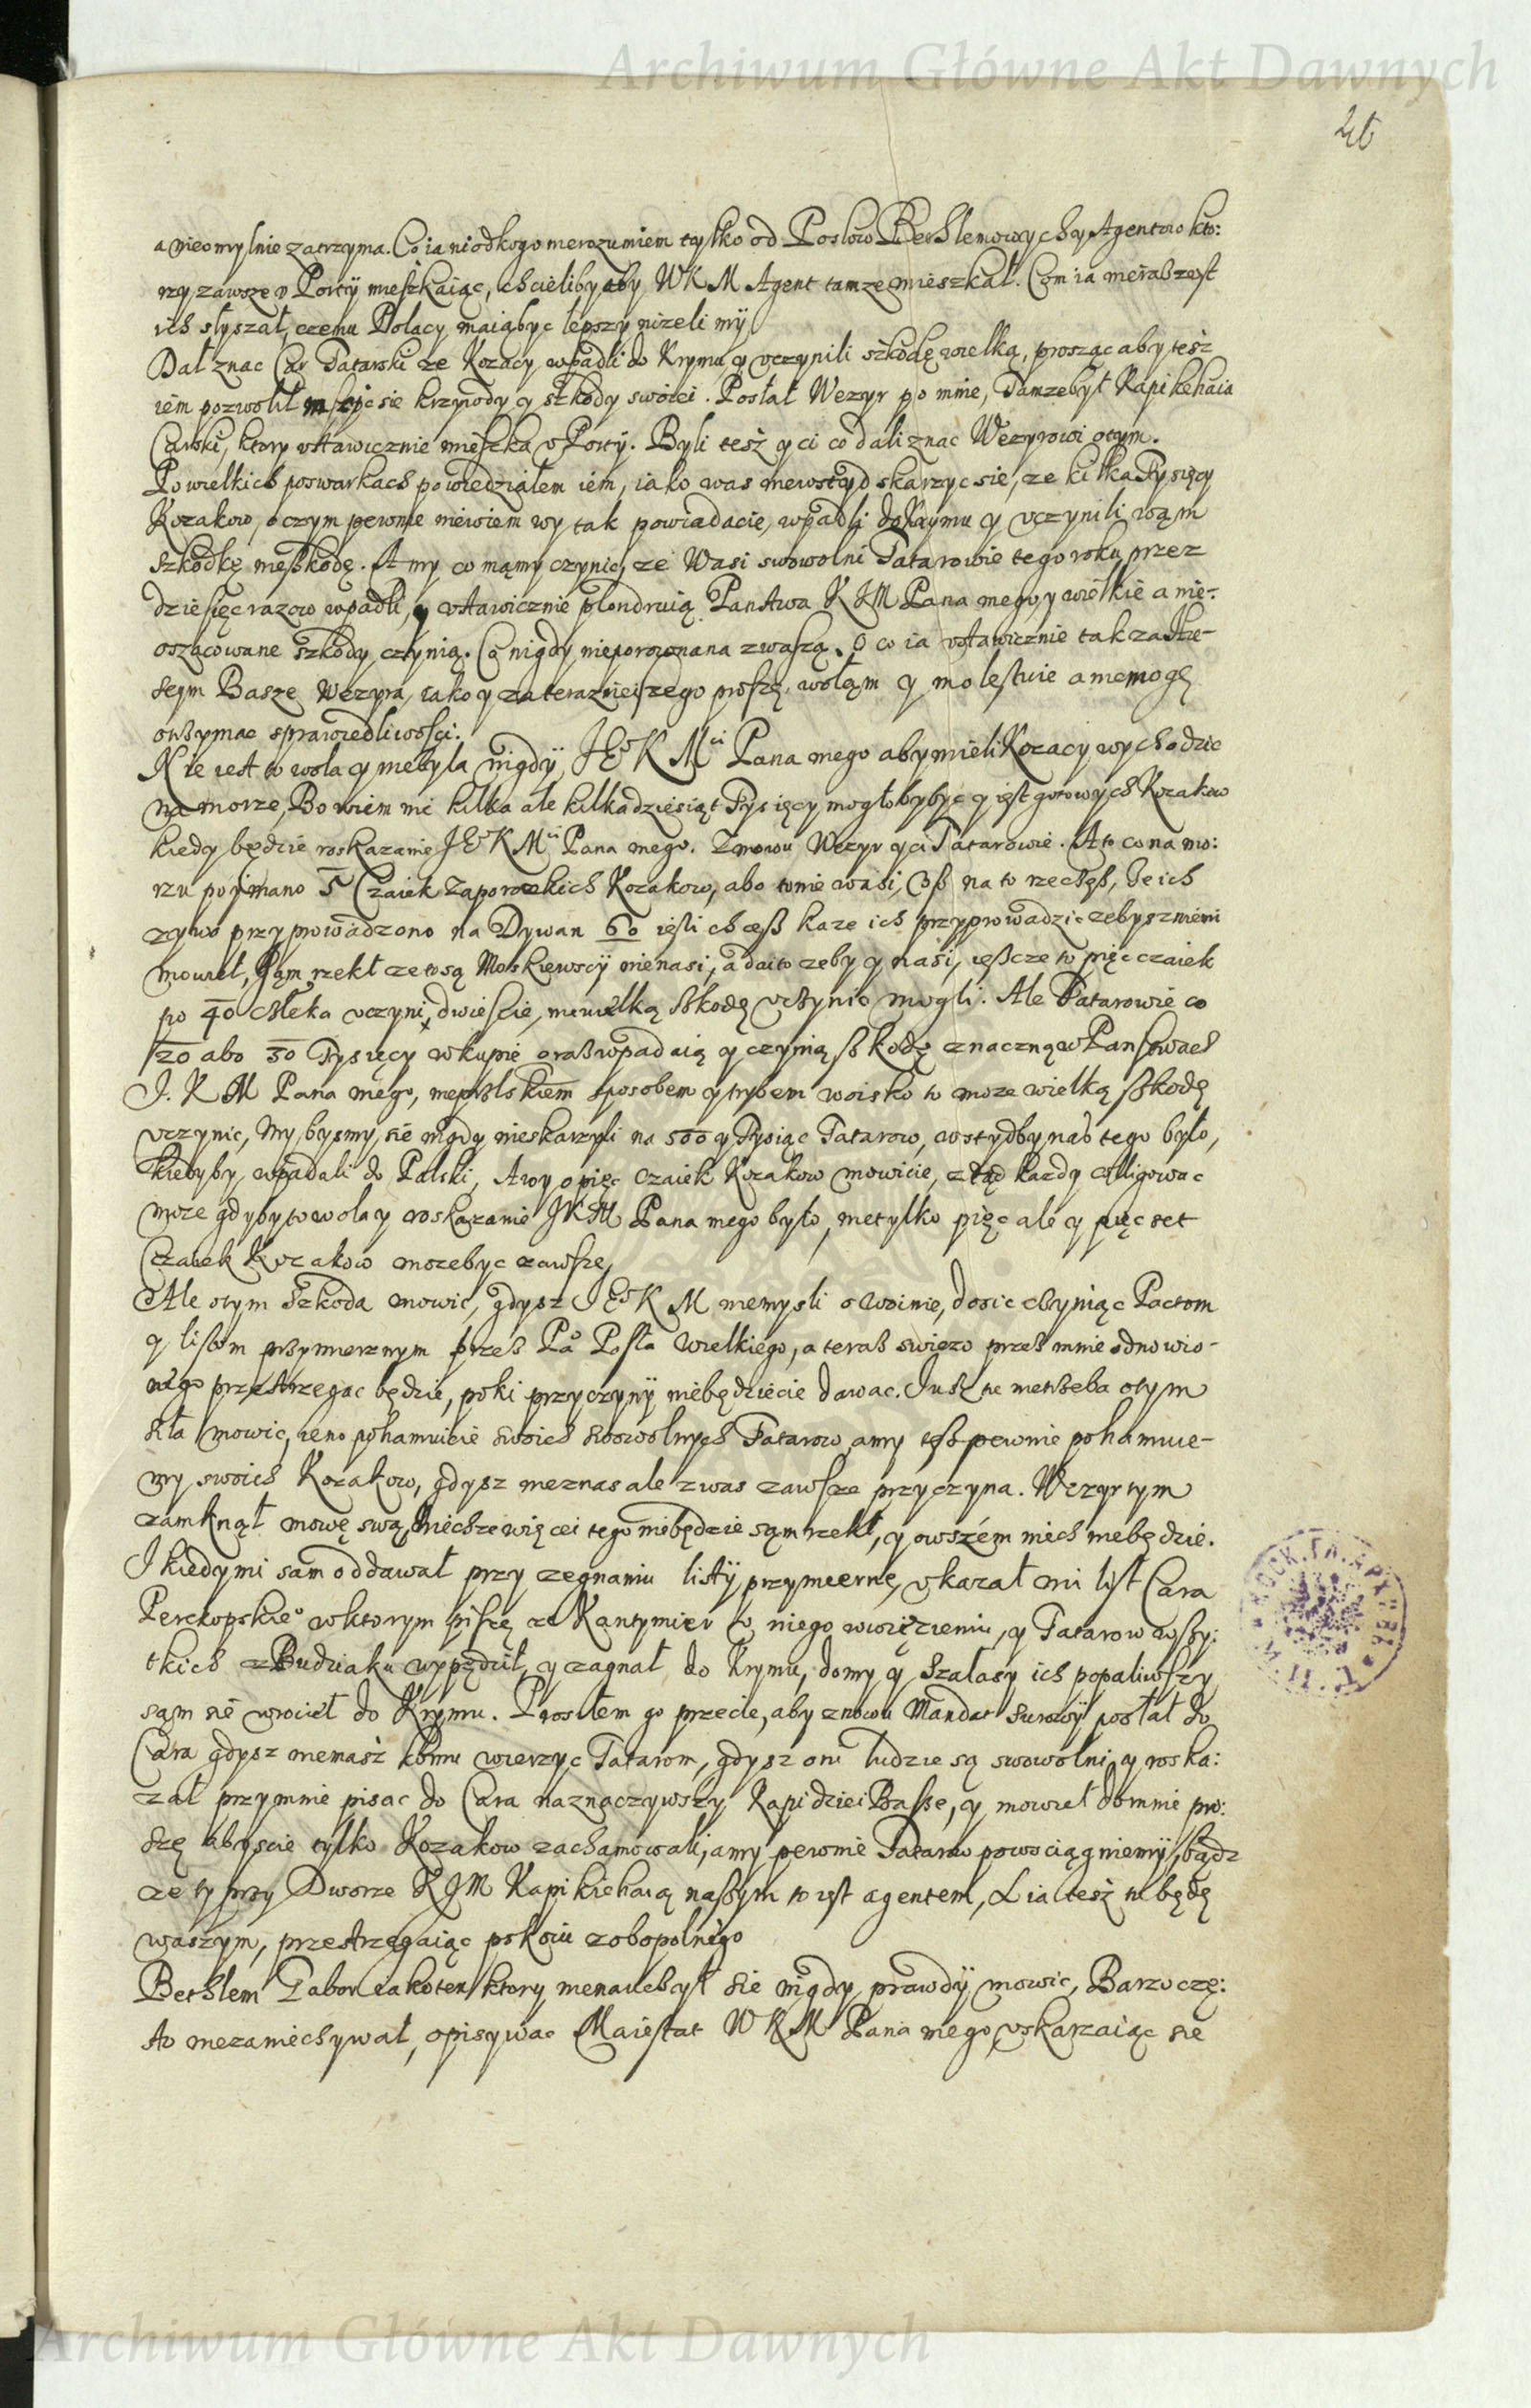 Archiwum Główne Akt Dawnych
26
a nieomylnie zatrzyma. Co ia ni od kogo nierozumiem tylko od Posłow Bethlemowych y Agentow kto:
rzy zawsze v Porty mieszkaiąc, chcieliby aby WKM Agent tamze mieszkał. Com ia nieraz z vst
ich słyszał, czemu Polacy maią byc lepszy nizeli my
Dał znac Car Tatarski ze Kozacy wpadli do Krymu y vczynili szkodę wielką, prosząc aby tesz
iem pozwolił mscic sie krzywdy y szkody swoiei. Posłał Wezyr po mnie, Tamze był Kapikehaia
Carski, ktory vstawicznie mieszka v Porty. Byli tesz y ci co dali znac Wezyrowi o tym.
Po wielkich poswarkach powiedziałem iem, iako was niewstyd skarzyc sie, ze kilka Tysięcy
Kozakow, o czym pewnie niewiem wy tak powiadacie, wpadli do Krymu y vczynili wąm
szkodkę nieszkodę. A my co mąmy czynic, ze Wasi swowolni Tatarowie tego roku przez
dziesięc razow wpadli, y vstawicznie plondruią Panstwa KJM Pana mego, y wielkie a nie-
oszacowane szkody czynią. Co nigdy nieporownana z waszą. O co ia vstawicznie tak za
szym Basze Wezyra, iako y za teraznieiszego proszę, wołąm y molestuie a niemogę
otrzymac sprawiedliwosci.
Nie iest to wola y niebyla nigdy JEo K Mci Pana mego aby mieli Kozacy wychodzic
na morze, Bo wiem nie kilka ale kilkadziesiąt Tysięcy mogłoby byc y iest gotowych Kozakow
kiedy będzie roskazanie JEo K Mci Pana mego. Znowu Wezyr y ci Tatarowie. A to co na mo:
rzu poimano 5 Czaiek Zaporozkich Kozakow, abo to nie wasi, Cosz na to rzeczesz, Ze ich
zywo przyprowadzono na Dywan 60 iesli chcesz kaze ich przyprowadzic zebysz z niemi
mowieł, Jąm rzekł ze to są Moskiewscy nie nasi, a daito zeby y nasi, ieszcze to pięc czaiek
po 40 człeka vczyni dwiescie, niewielką szkodę vczynic mogli. Ale Tatarowie co
20 abo 30 Tysięcy w kupie oraz wpadaią y czynią szkodę znaczną w Panstwach
J. K M Pana mego, nieprzelskiem sposobem y trybem woisko to moze wielką szkodę
vczynic, My bysmy sie nigdy nieskarzyli na 500 y Tysiąc Tatarow, wstyd by nas tego było,
kiedyby wpadali do Polski, A wy o pięc czaiek Kozakow mowicie, ztąd kazdy colligowac
moze gdyby to wola y roskazanie JKM Pana mego było, nie tylko pięc ale y pięc set
Czaiek Kozakow moze byc zawsze,
Ale o tym szkoda mowic, gdysz JEo K M niemysli o woinie, dosic czyniąc Pactom
y listom przymierznym przez Pa Posła Wielkiego, a teraz swiezo przez mnie odnowio-
nego przestrzegac będzie, poki przyczyny niebędziecie dawac. Jusz tu nietrzeba o tym
siła mowic, ieno pohamuicie swoich swowolnych Tatarow, a my tesz pewnie pohamuie-
my swoich Kozakow, gdysz nie z nas ale z was zawsze przyczyna. Wezyr tym
zamknął mowę swą, niechze więcei tego niebędzie sąm rzekł, y owszem niech niebędzie.
I kiedy mi sam oddawał przy zegnaniu listy przymierne, vkazał mi list Cara
Perekopskieo w ktorym pisze ze Kantymier v niego w więzieniu, y Tatarow wszy:
tkich z Budziaku wypędził, y zagnał do Krymu, domy y szałasy ich popaliwszy
sąm sie wrocieł do Krymu. Prosiłem go przecie, aby znowu Mandat surowy posłał do
Cara gdysz niemasz komu wierzyc Tatarom, gdysz oni ludzie są swowolni, y roska:
zał przy mnie pisac do Cara naznaczywszy Kapidziei Basse, y mowieł do mnie pro:
szę abyscie tylko Kozakow zachamowali, a my pewnie Tatarow powsciągniemy, bądz
ze ty przy Dworze KJM Kapikiehaią naszym to iest agentem, A ia tesz tu będę
waszym, przestrzegaiąc pokoiu zobopolnego
Bethlem Gabor iako ten ktory nienauczył sie nigdy prawdy mowic, Barzo czę:
sto niezaniechywał, opisywac Maiestat WKM Pana mego, vskarzaiąc sie
Archiwum Główne Akt Dawnych